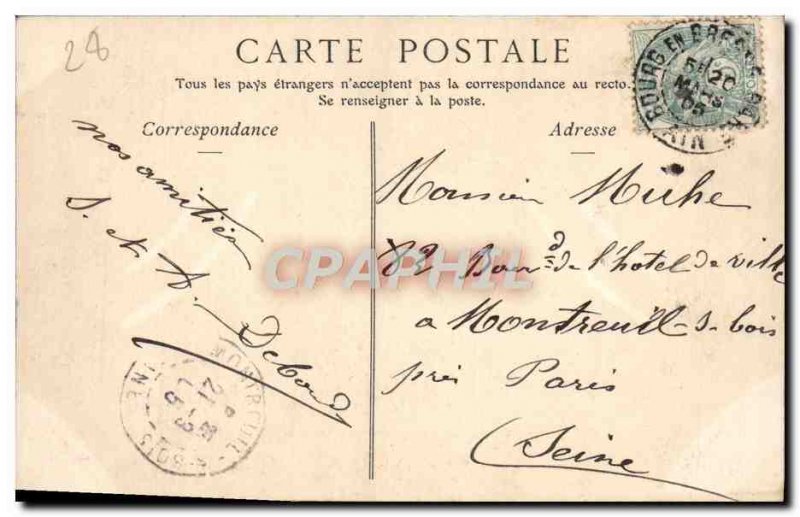 28
CARTE POSTALE
Tous les pays étrangers n'acceptent pas la correspondance au recto.
Se renseigner à la poste.
Correspondance
nos amitiés
S. et A. Debord
Adresse
BOURG EN BRESSE
5E 20
MARS
05
AIN
Monsieur Muhe
82 Bourd de l'hotel de ville
a Montreuil-s-bois
près Paris
Seine
MONTREUIL-S-BOIS
SEINE
CPAPHIL